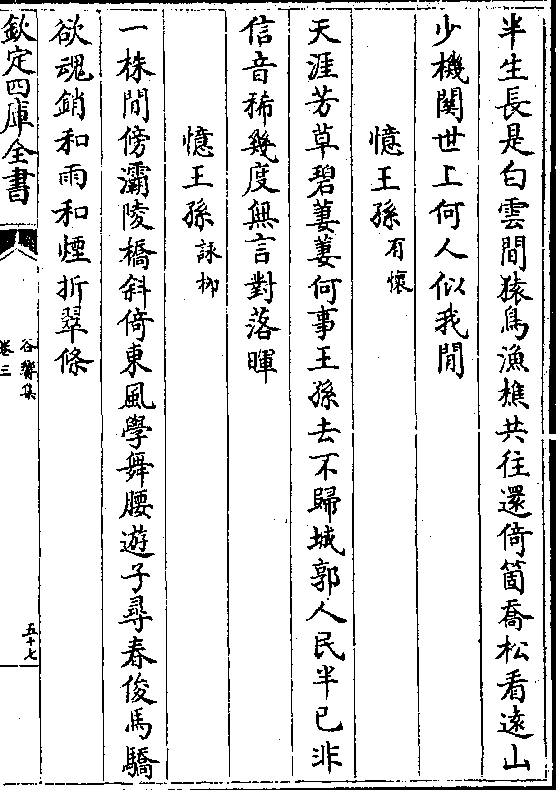 半生長是白雲間猿鳥漁樵共往還倚箇喬松看遠山
少機関世上何人似我閒
憶王孫有懷
天涯芳草碧萋萋何事王孫去不歸城郭人民半已非
信音稀幾度無言對落暉
憶王孫詠柳
一株閒傍灞陵橋斜倚東風學舞腰遊子尋春俊馬驕
欲魂銷和雨和煙折翠條
欽定四庫全書
谷響集
卷三
五十七